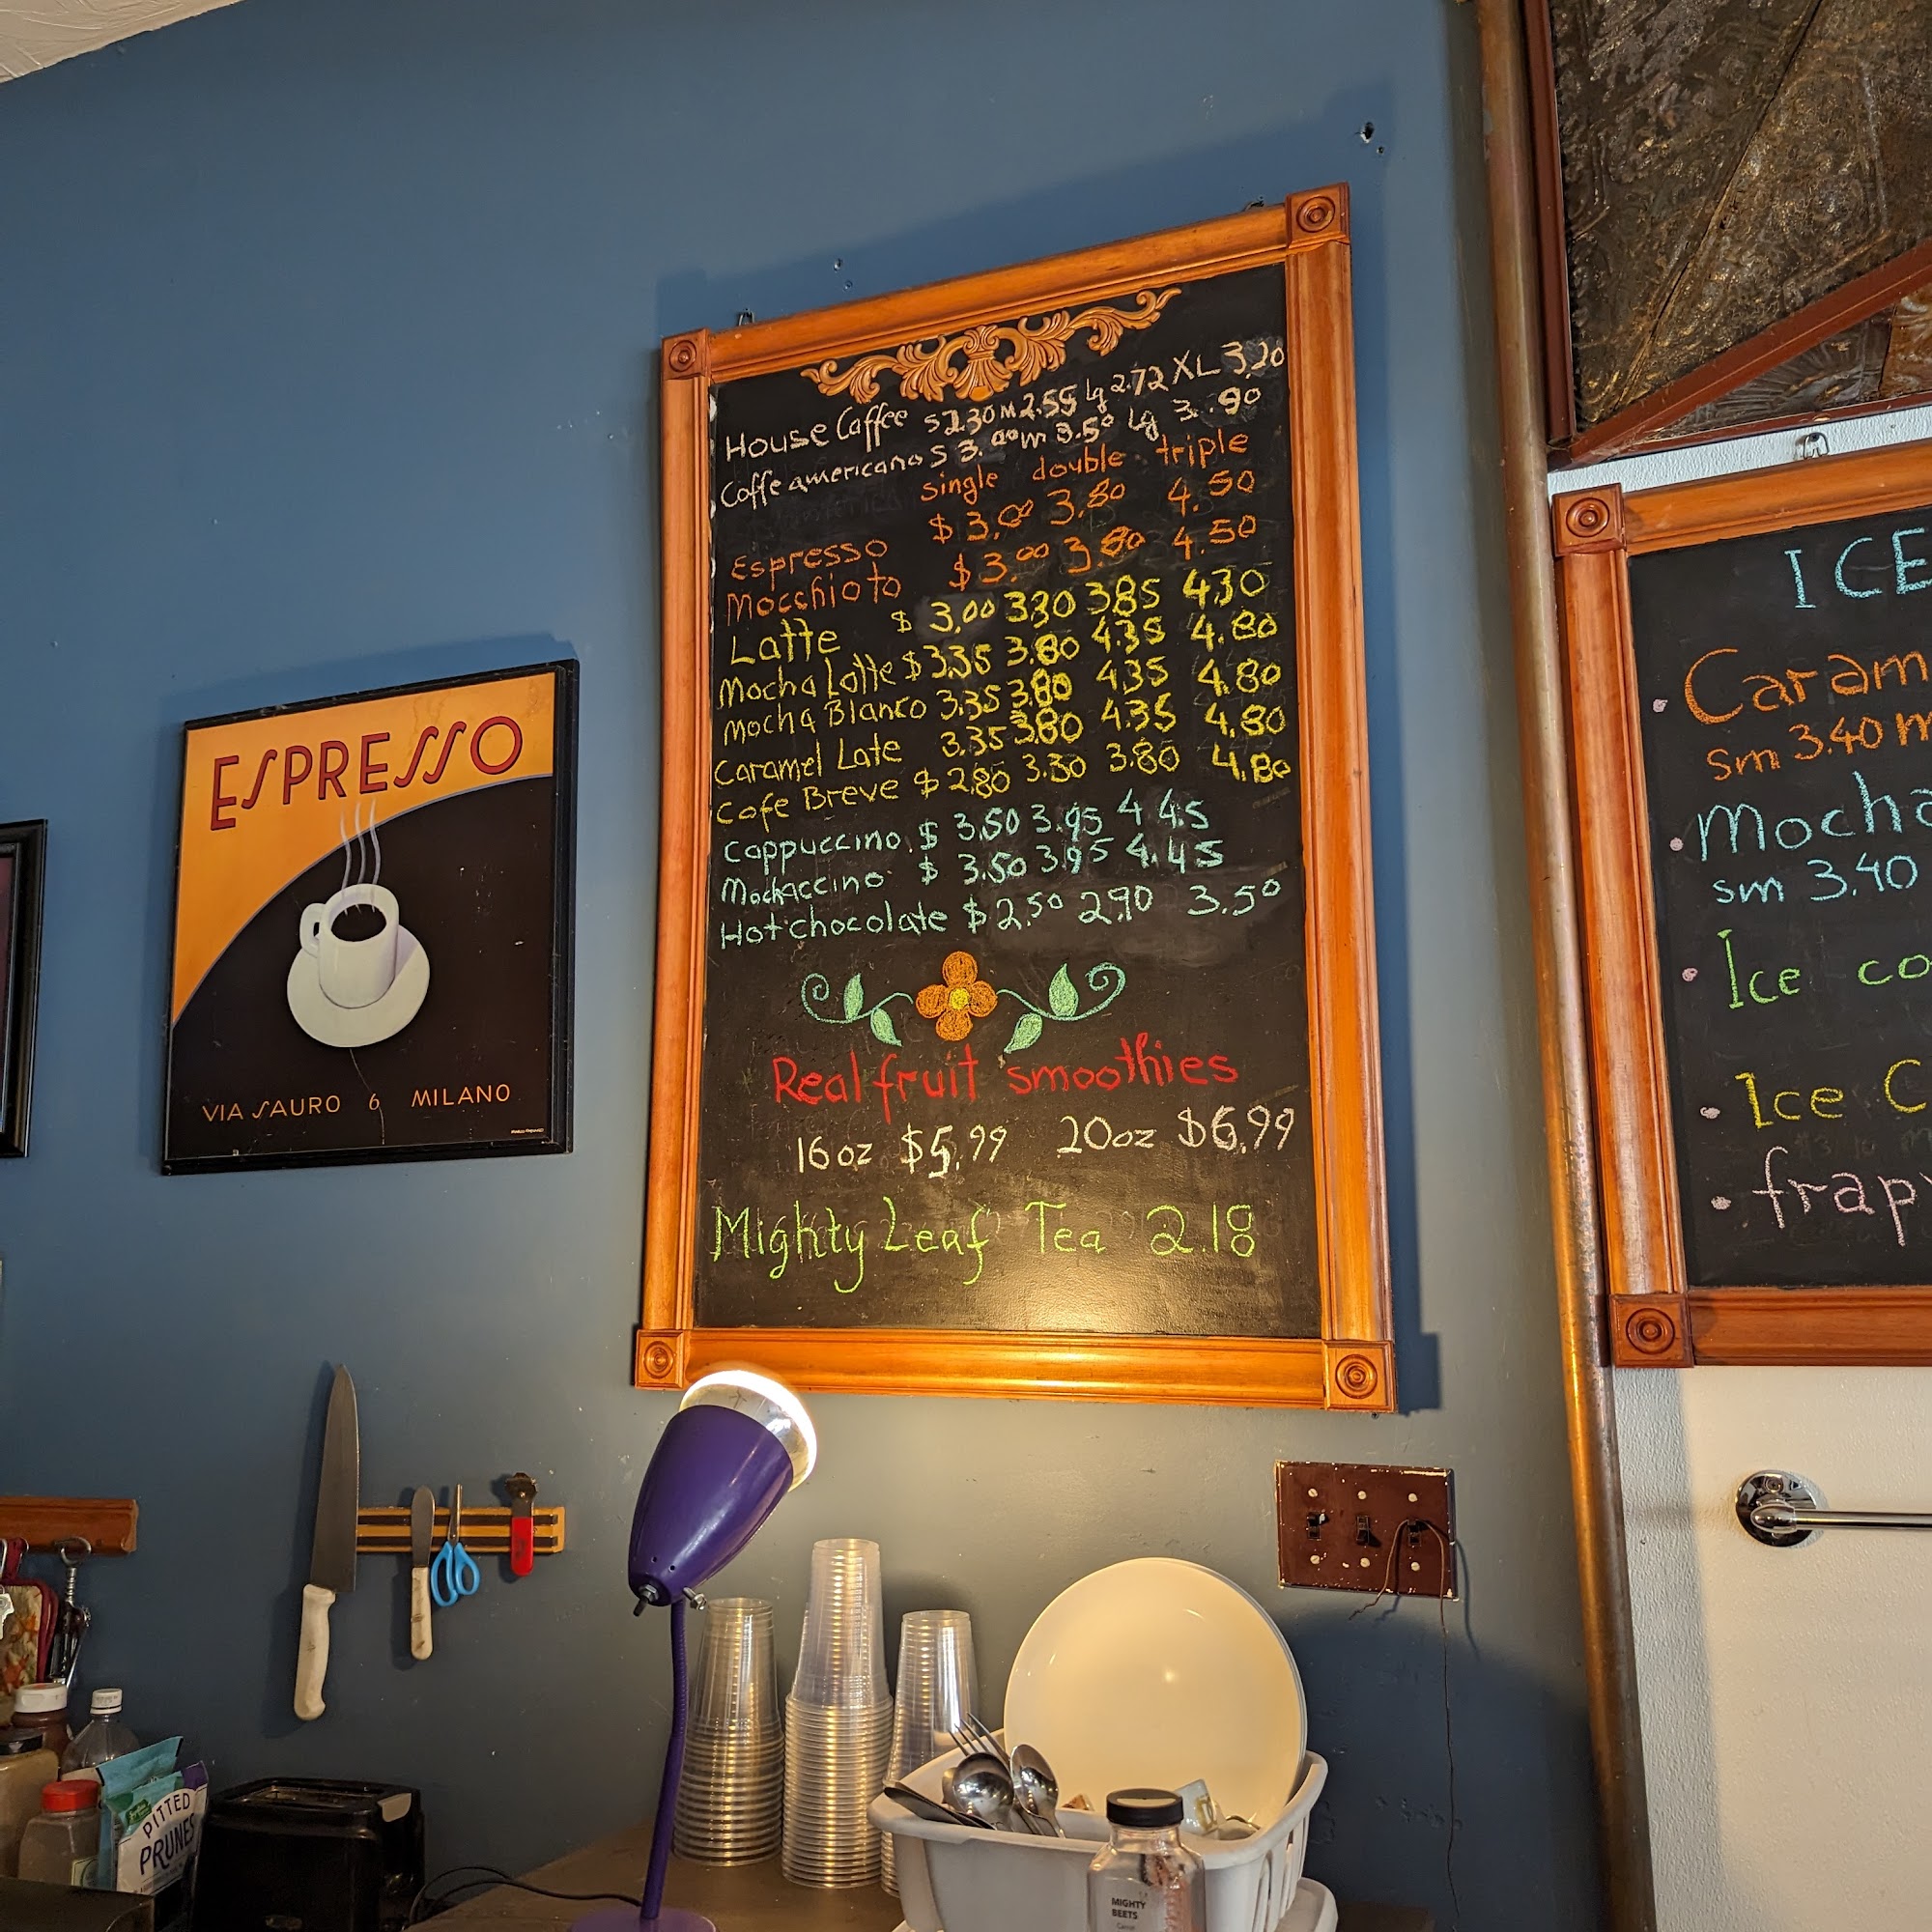 ESPRESSO
VIA SAURO 6 MILANO
House Coffee S 2.30 M 2.55 lg 2.72 XL 3.20
Coffe americano S 3.00 m 3.50 lg 3.90
single double triple
Espresso $3.00 3.80 4.50
Mocchioto $3.00 3.80 4.50
Latte $ 3.00 3.30 3.85 4.30
Mocha Latte $3.35 3.80 4.35 4.80
Mocha Blanco 3.35 3.80 4.35 4.80
Caramel Late 3.35 3.80 4.35 4.80
Cafe Breve $2.80 3.30 3.80 4.80
Cappuccino $ 3.50 3.95 4.45
Mockaccino $ 3.50 3.95 4.45
Hot chocolate $2.50 2.90 3.50
Real fruit smoothies
16oz $5.99 20oz $6.99
Mighty Leaf Tea 2.18
ICE
Caram
sm 3.40 m
Mocha
sm 3.40
Ice co
Ice C
frap
PITTED
PRUNES
MIGHTY
BEETS